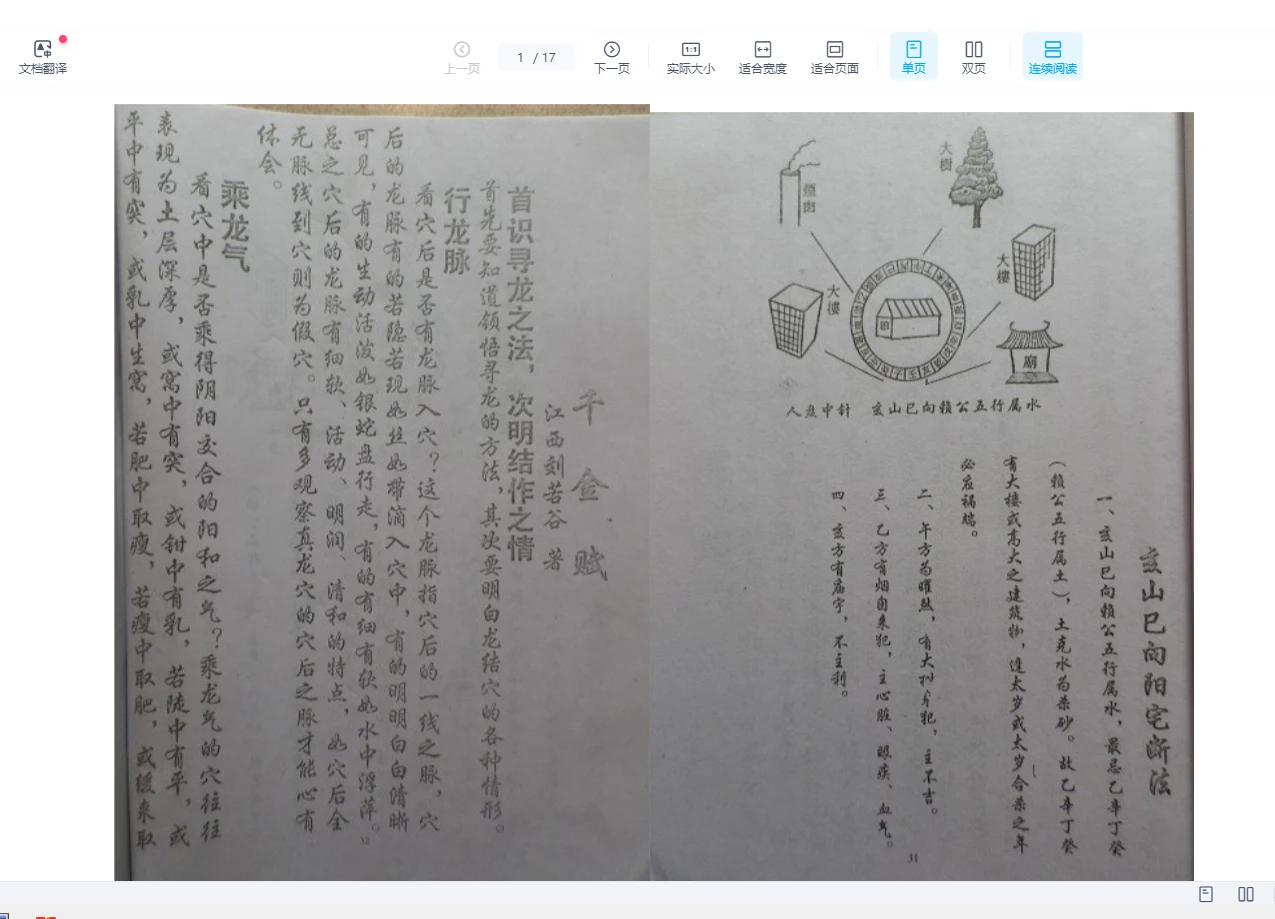 文档翻译
上一页
1 / 17
下一页
实际大小
适合宽度
适合页面
单页
双页
连续阅读
大樹
烟囱
大樓
大樓
廟
人盘中针 亥山巳向賴公五行属水
亥山巳向阳宅断法
一、亥山巳向賴公五行属水，最忌乙辛丁癸
（賴公五行属土），土克水为杀砂。故乙辛丁癸
有大楼或高大之建筑物，逢太岁或太岁合杀之年
必应祸端。
二、午方为曜煞，有大树来犯，主不吉。
三、乙方有烟囱来犯，主心脏、眼疾、血气。
四、亥方有庙宇，不主利。
31
千金赋
江西刘若谷 著
首识寻龙之法，次明结作之情
首先要知道领悟寻龙的方法，其次要明白龙结穴的各种情形。
行龙脉
看穴后是否有龙脉入穴？这个龙脉指穴后的一线之脉，穴
后的龙脉有的若隐若现如丝如带滴入穴中，有的明明白白清晰
可见，有的生动活泼如银蛇盘行走，有的有细有软如水中浮萍。
总之穴后的龙脉有细软、活动、明润、清和的特点，如穴后全
无脉线到穴则为假穴。只有多观察真龙穴的穴后之脉才能心有
体会。
乘龙气
看穴中是否乘得阴阳交合的阳和之气？乘龙气的穴往往
表现为土层深厚，或窝中有突，或钳中有乳，若陡中有平，或
平中有突，或乳中生窝，若肥中取瘦，若瘦中取肥，或缓来取